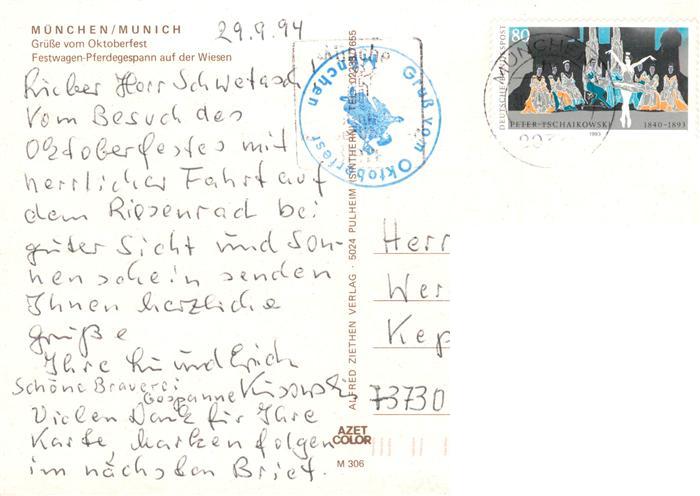 MÜNCHEN/MUNICH
Grüße vom Oktoberfest
Festwagen-Pferdegespann auf der Wiesen
29.9.94
Lieber Herr Schwetasch
Vom Besuch des
Oktoberfestes mit
herrlicher Fahrt auf
dem Riesenrad bei
guter Sicht und Son-
nenschein senden
Ihnen herzliche
Grüße
Ihre und Erich
Schöne Brauerei
Gespanne
Vielen Dank für Ihre
Karte, Marken folgen
im nächsten Brief.
Gruß vom Oktoberfest München
ALFRED ZIETHEN VERLAG · 5024 PULHEIM (SINTHERN) · TEL. 02238/7655
AZET
COLOR
M 306
80
DEUTSCHE BUNDESPOST
PETER TSCHAIKOWSKY 1840-1893
1993
MÜNCHEN
Herr
Wer
Kep
73730